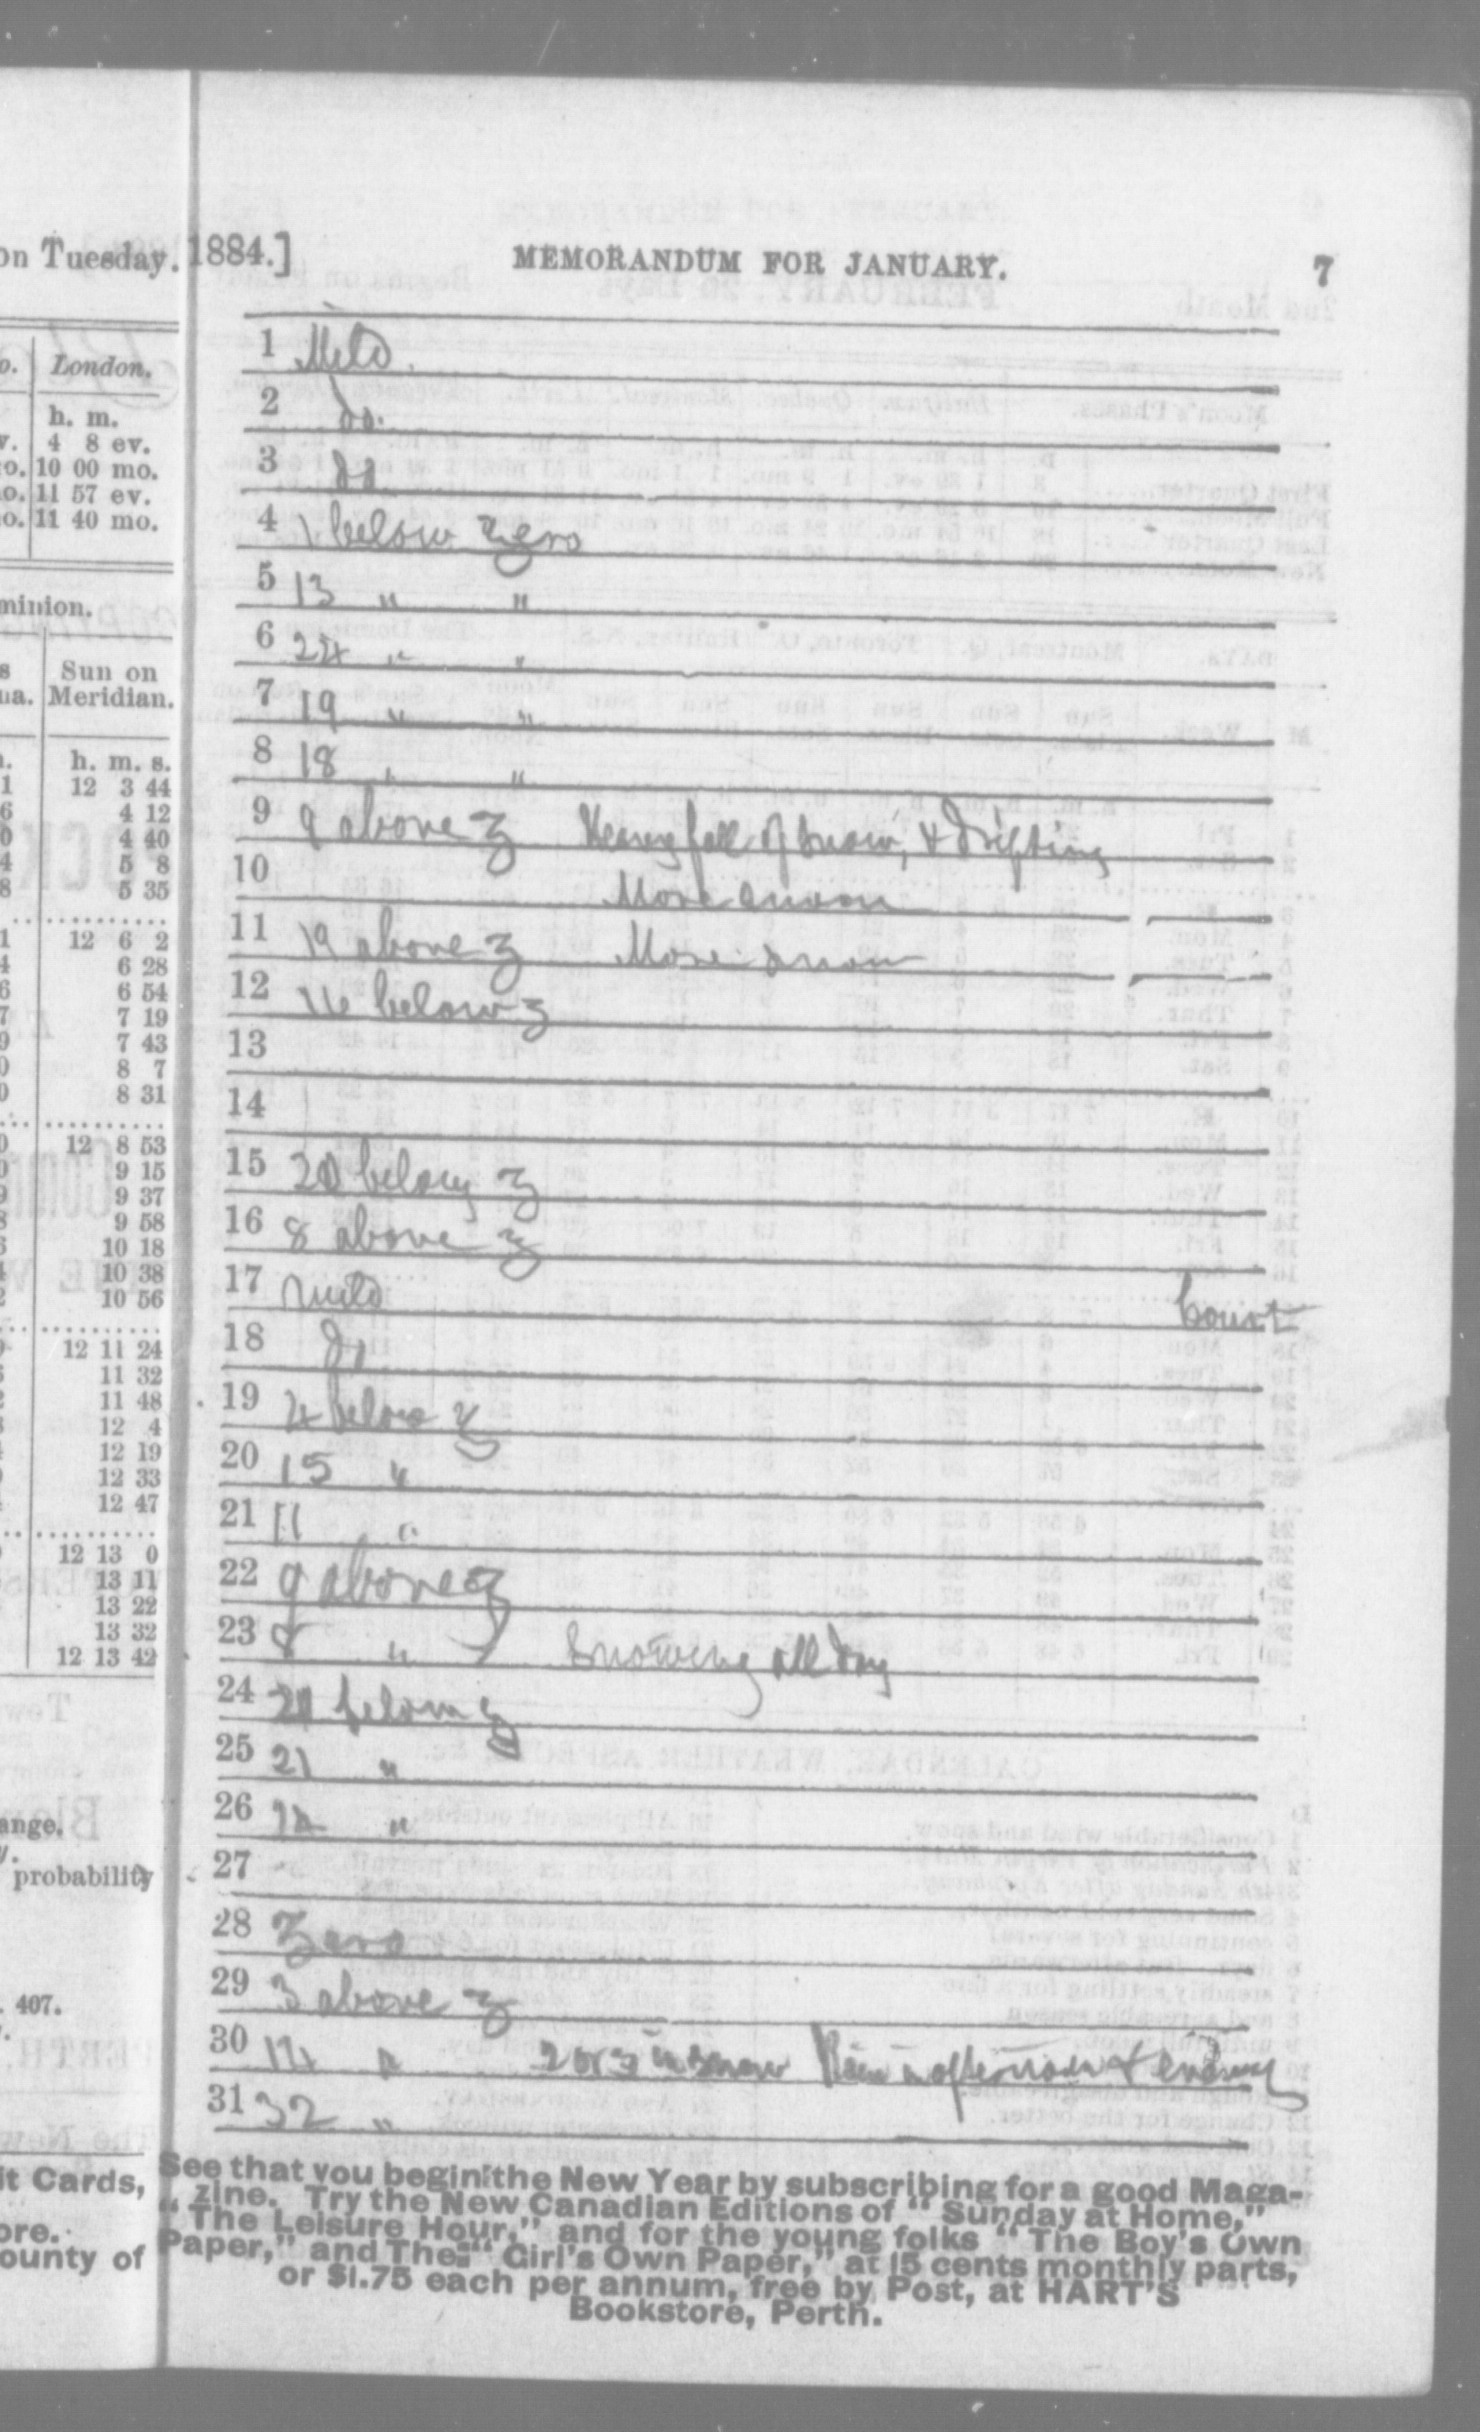 on Tuesday.
o. London.
h. m.
v. 4 8 ev.
o. 10 00 mo.
o. 11 57 ev.
o. 11 40 mo.
minion.
s Sun on
ua. Meridian.
h. m. s.
1 12 3 44
6 4 12
0 4 40
4 5 8
8 5 35
1 12 6 2
4 6 28
6 6 54
7 7 19
9 7 43
0 8 7
0 8 31
0 12 8 53
0 9 15
9 9 37
8 9 58
6 10 18
4 10 38
2 10 56
12 11 24
11 32
2 11 48
12 4
12 19
12 33
12 47
12 13 0
13 11
13 22
13 32
12 13 42
ange.
probability
407.
it Cards,
ore.
ounty of
1884.] MEMORANDUM FOR JANUARY. 7
1 Mild.
2 do.
3 do
4 1 below zero
5 13 " "
6 24 " "
7 19 " "
8 18 " "
9 9 above z Heavy fall of snow, & drifting
10 More snow
11 19 above z More snow
12 16 below z
13
14
15 20 below z
16 8 above z
17 mild Court
18 do
19 4 below z
20 15 "
21 11 "
22 9 above z
23 8 " Snowing all day
24 20 below z
25 21 "
26 14 "
27
28 Zero
29 3 above z
30 14 " 2 or 3 in snow Rain in afternoon & evening
31 32 "
See that you begin the New Year by subscribing for a good Maga-
zine. Try the New Canadian Editions of "Sunday at Home,"
"The Leisure Hour," and for the young folks "The Boy's Own
Paper," and The "Girl's Own Paper," at 15 cents monthly parts,
or $1.75 each per annum, free by Post, at HART'S
Bookstore, Perth.